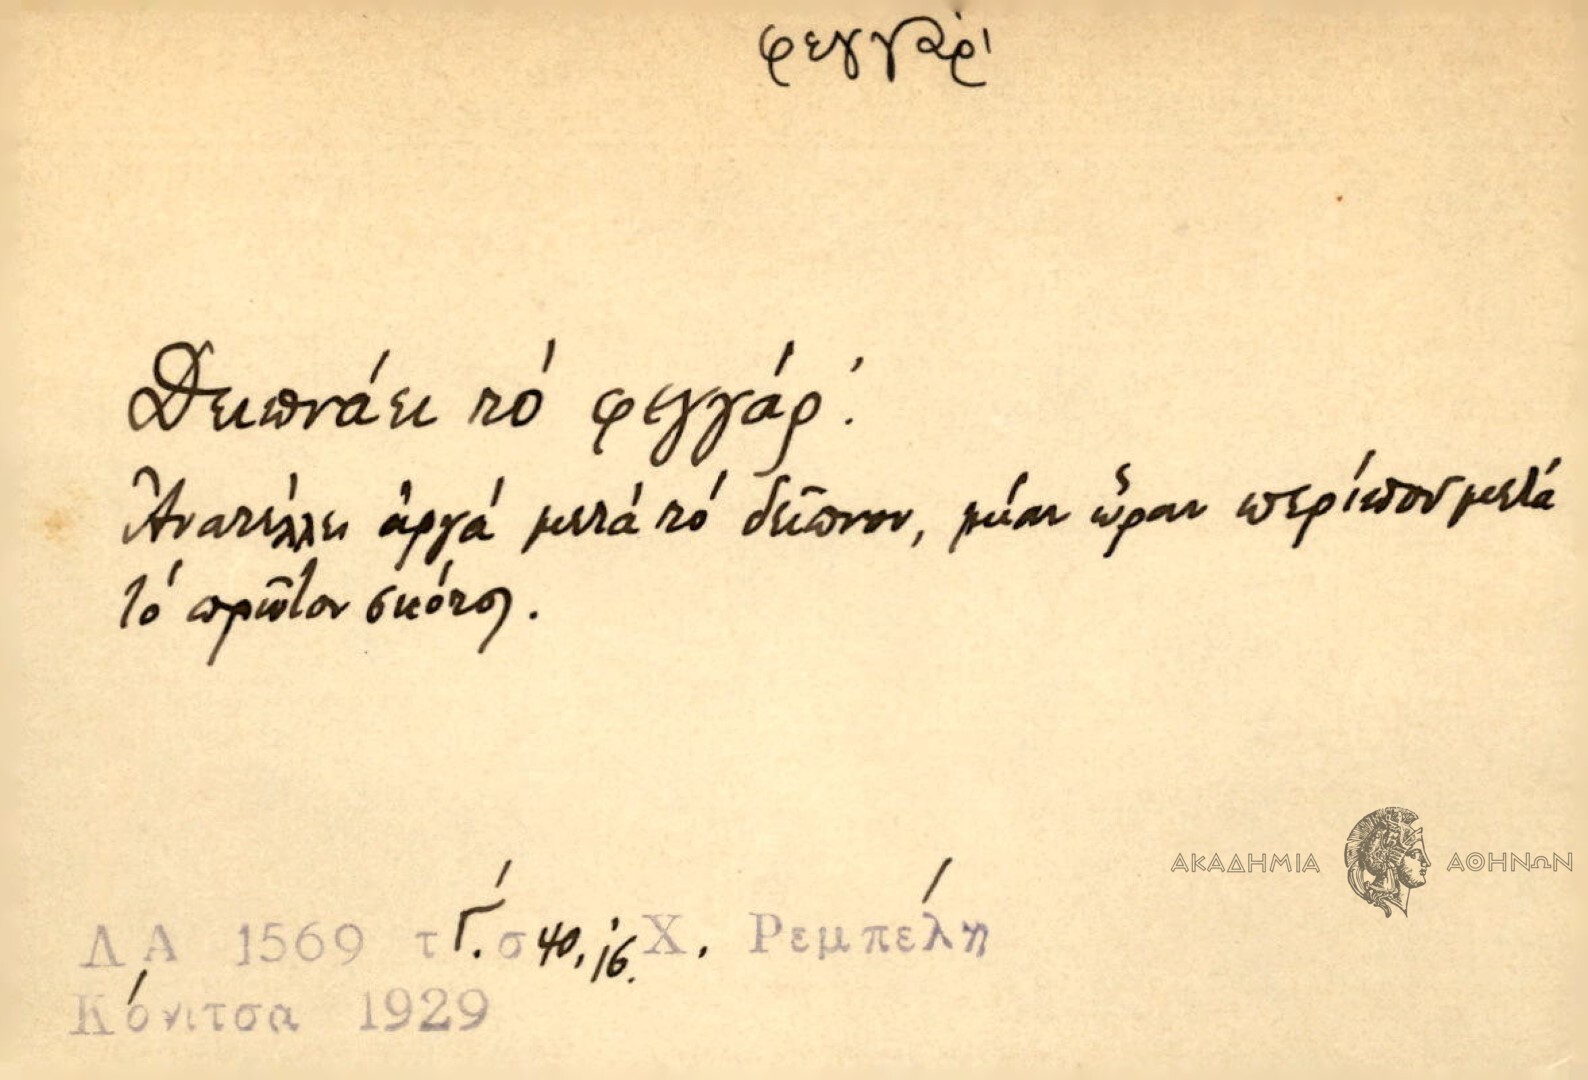 φεγγάρι
Δειπνάει τό φεγγάρ'.
Ἀνατέλλει ἀργά μετά τό δεῖπνον, μίαν ὥραν περίπου μετά
τό πρῶτον σκότος.
ΑΚΑΔΗΜΙΑ ΑΘΗΝΩΝ
ΛΑ 1569 τ Γ'. σ 40, 16. Χ. Ρεμπέλη
Κόνιτσα 1929